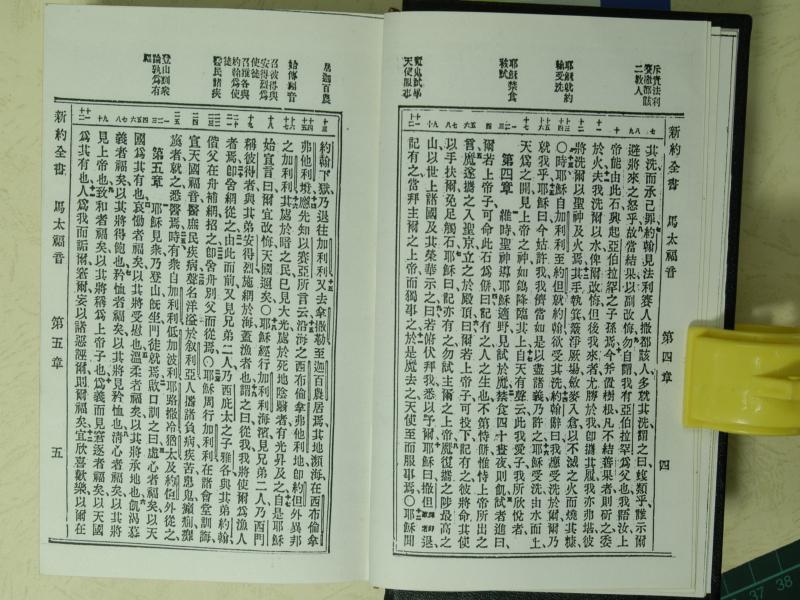 新約全書 馬太福音 第四章 四
斥責法利賽撒都該二教人
耶穌就約翰受洗
耶穌禁食被試
魔鬼試畢天使服事
其洗而承己罪約翰見法利賽人撒都該人多就其洗謂之曰蝮類乎誰示爾
避將來之怒乎故當結果以副改悔勿自謂我有亞伯拉罕爲父也我語汝上
帝能由此石興起亞伯拉罕之子孫焉今斧置樹根凡不結善果者則斫之委
於火夫我洗爾以水俾爾改悔但後我來者尤勝於我卽攜其履我亦弗堪彼
將洗爾以聖神及火焉其手執箕簸淨厥場斂麥入倉以不滅之火而燒其糠
〇時耶穌自加利利至約但就約翰欲受其洗約翰辭曰我應受洗於爾爾乃
就我乎耶穌曰今姑許我我儕當如是以盡諸義乃許之耶穌受洗由水而上
天爲之開見上帝之神如鴿降臨其上自天有聲云此我愛子我所欣悅者
第四章 維時聖神導耶穌適野見試於魔禁食四十晝夜則飢試者進曰
爾若上帝子可命此石爲餅曰記有之人之生也不第恃餅惟恃上帝所出之
言魔遂攜之入聖京立之於殿頂曰爾若上帝子可投下記有之彼將命其使
以手扶爾免足觸石耶穌曰記亦有之勿試主爾之上帝魔復攜之陟最高之
山以世上諸國及其榮華示之曰若俯伏拜我悉以予爾耶穌曰撒但退
記有之當拜主爾之上帝而獨事之於是魔去之天使至而服事焉〇耶穌聞
居迦百農
始傳福音
召彼得與安得烈爲使徒
召雅各與約翰爲使徒
醫民諸疾
登山訓衆論孰爲有福
約翰下獄乃退往加利利又去拿撒勒至迦百農居焉其地瀕海在西布倫拿
弗他利境應先知以賽亞所言云沿海之西布倫拿弗他利地卽約但外異邦
之加利利其處於暗之民已見大光處於死地陰翳者有光昇及之自是耶穌
始宣言曰爾宜改悔天國邇矣〇耶穌經行加利利海濱見兄弟二人乃西門
稱彼得者與其弟安得烈施網於海蓋漁者也謂之曰從我我將使爾爲漁人
者焉卽舍網從之由此而前又見兄弟二人乃西庇太之子雅各與其弟約翰
偕父在舟補網招之卽舍舟別父而從焉〇耶穌周行加利利在諸會堂訓誨
宣天國福音醫庶民疾病聲名洋溢於叙利亞人攜諸負病疾苦患鬼癲癇癱
瘓者就之悉醫焉時有衆自加利利低加波利耶路撒冷猶太及約但外從之
第五章 耶穌見衆乃登山旣坐門徒就焉啟口訓之曰虛心者福矣以天
國爲其有也哀慟者福矣以其將受慰也溫柔者福矣以其將承地也飢渴慕
義者福矣以其將得飽也矜恤者福矣以其將見矜恤也淸心者福矣以其將
見上帝也致和者福矣以其將稱爲上帝子也爲義而見窘逐者福矣以天國
爲其有也人爲我而詬爾窘爾妄以諸惡誣爾則爾福矣宜欣喜歡樂以爾在
新約全書 馬太福音 第五章 五
37 38